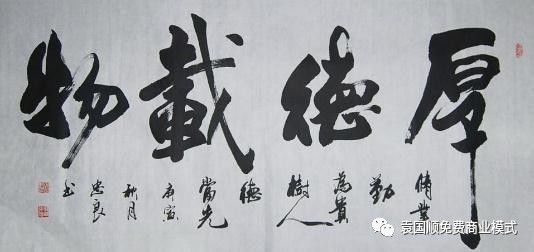 厚德載物
業勤為貴樹人德當先
庚寅秋月忠良书
袁国顺免费商业模式